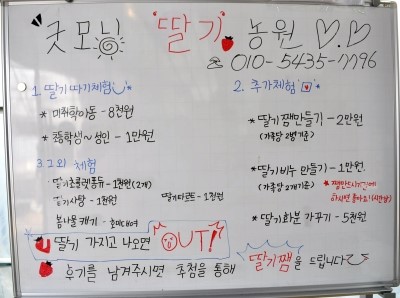 굿모닝 "딸기" 농원 ♡.♡
☎ 010-5435-7796
1. 딸기따기체험
* 미취학아동 - 8천원
* 초등학생~성인 - 1만원
2. 추가체험
* 딸기쨈만들기 - 2만원
(가족당 2병기준)
* 딸기비누 만들기 - 1만원
(가족당 2개기준)
* 딸기화분 가꾸기 - 5천원
3. 그외 체험
딸기초콜렛퐁듀 - 1천원 (2개)
딸기사탕 - 1천원
딸기타르트 - 1천원
봄나물캐기 - 호미대여
딸기 가지고 나오면 OUT!
후기를 남겨주시면 추첨을 통해 딸기쨈을 드립니다